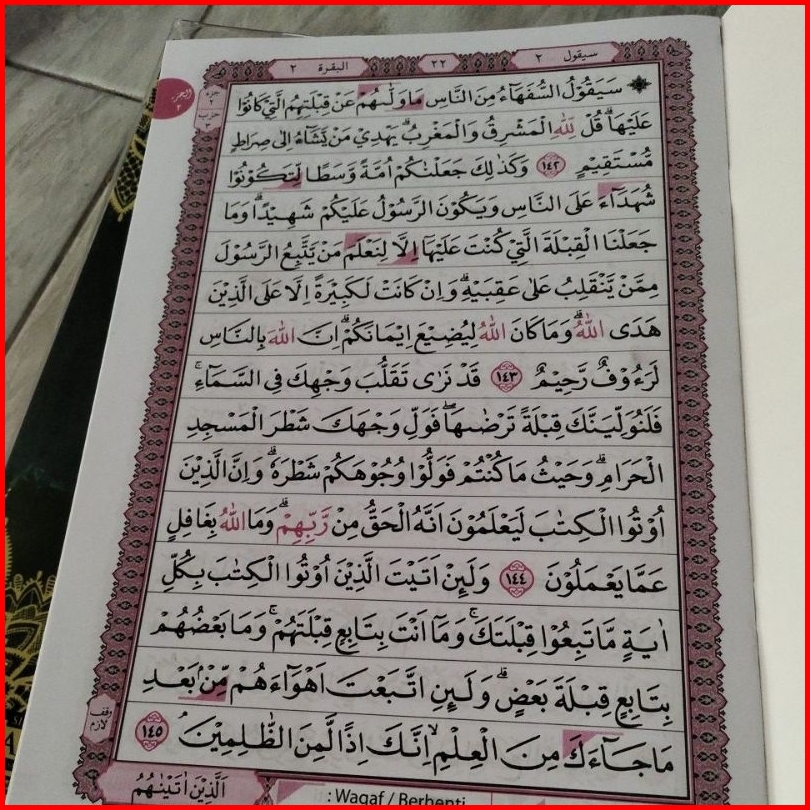 سيقول ٢
٢٢
البقرة ٢
الجزء ٢
جزء ٢
حزب ٣
سَيَقُوْلُ السُّفَهَاۤءُ مِنَ النَّاسِ مَا وَلّٰىهُمْ عَنْ قِبْلَتِهِمُ الَّتِيْ كَانُوْا
عَلَيْهَاۗ قُلْ لِّلّٰهِ الْمَشْرِقُ وَالْمَغْرِبُۗ يَهْدِيْ مَنْ يَّشَاۤءُ اِلٰى صِرَاطٍ
مُّسْتَقِيْمٍ ١٤٢ وَكَذٰلِكَ جَعَلْنٰكُمْ اُمَّةً وَّسَطًا لِّتَكُوْنُوْا
شُهَدَاۤءَ عَلَى النَّاسِ وَيَكُوْنَ الرَّسُوْلُ عَلَيْكُمْ شَهِيْدًاۗ وَمَا
جَعَلْنَا الْقِبْلَةَ الَّتِيْ كُنْتَ عَلَيْهَآ اِلَّا لِنَعْلَمَ مَنْ يَّتَّبِعُ الرَّسُوْلَ
مِمَّنْ يَّنْقَلِبُ عَلٰى عَقِبَيْهِۗ وَاِنْ كَانَتْ لَكَبِيْرَةً اِلَّا عَلَى الَّذِيْنَ
هَدَى اللّٰهُۗ وَمَا كَانَ اللّٰهُ لِيُضِيْعَ اِيْمَانَكُمْۗ اِنَّ اللّٰهَ بِالنَّاسِ
لَرَءُوْفٌ رَّحِيْمٌ ١٤٣ قَدْ نَرٰى تَقَلُّبَ وَجْهِكَ فِى السَّمَاۤءِۚ
فَلَنُوَلِّيَنَّكَ قِبْلَةً تَرْضٰىهَاۖ فَوَلِّ وَجْهَكَ شَطْرَ الْمَسْجِدِ
الْحَرَامِۗ وَحَيْثُ مَا كُنْتُمْ فَوَلُّوْا وُجُوْهَكُمْ شَطْرَهٗۗ وَاِنَّ الَّذِيْنَ
اُوْتُوا الْكِتٰبَ لَيَعْلَمُوْنَ اَنَّهُ الْحَقُّ مِنْ رَّبِّهِمْۗ وَمَا اللّٰهُ بِغَافِلٍ
عَمَّا يَعْمَلُوْنَ ١٤٤ وَلَىِٕنْ اَتَيْتَ الَّذِيْنَ اُوْتُوا الْكِتٰبَ بِكُلِّ
اٰيَةٍ مَّا تَبِعُوْا قِبْلَتَكَۚ وَمَآ اَنْتَ بِتَابِعٍ قِبْلَتَهُمْۚ وَمَا بَعْضُهُمْ
بِتَابِعٍ قِبْلَةَ بَعْضٍۗ وَلَىِٕنِ اتَّبَعْتَ اَهْوَاۤءَهُمْ مِّنْۢ بَعْدِ
مَا جَاۤءَكَ مِنَ الْعِلْمِۙ اِنَّكَ اِذًا لَّمِنَ الظّٰلِمِيْنَۘ ١٤٥
وقف لازم
اَلَّذِيْنَ اٰتَيْنٰهُمُ
: Waqaf / Berhenti